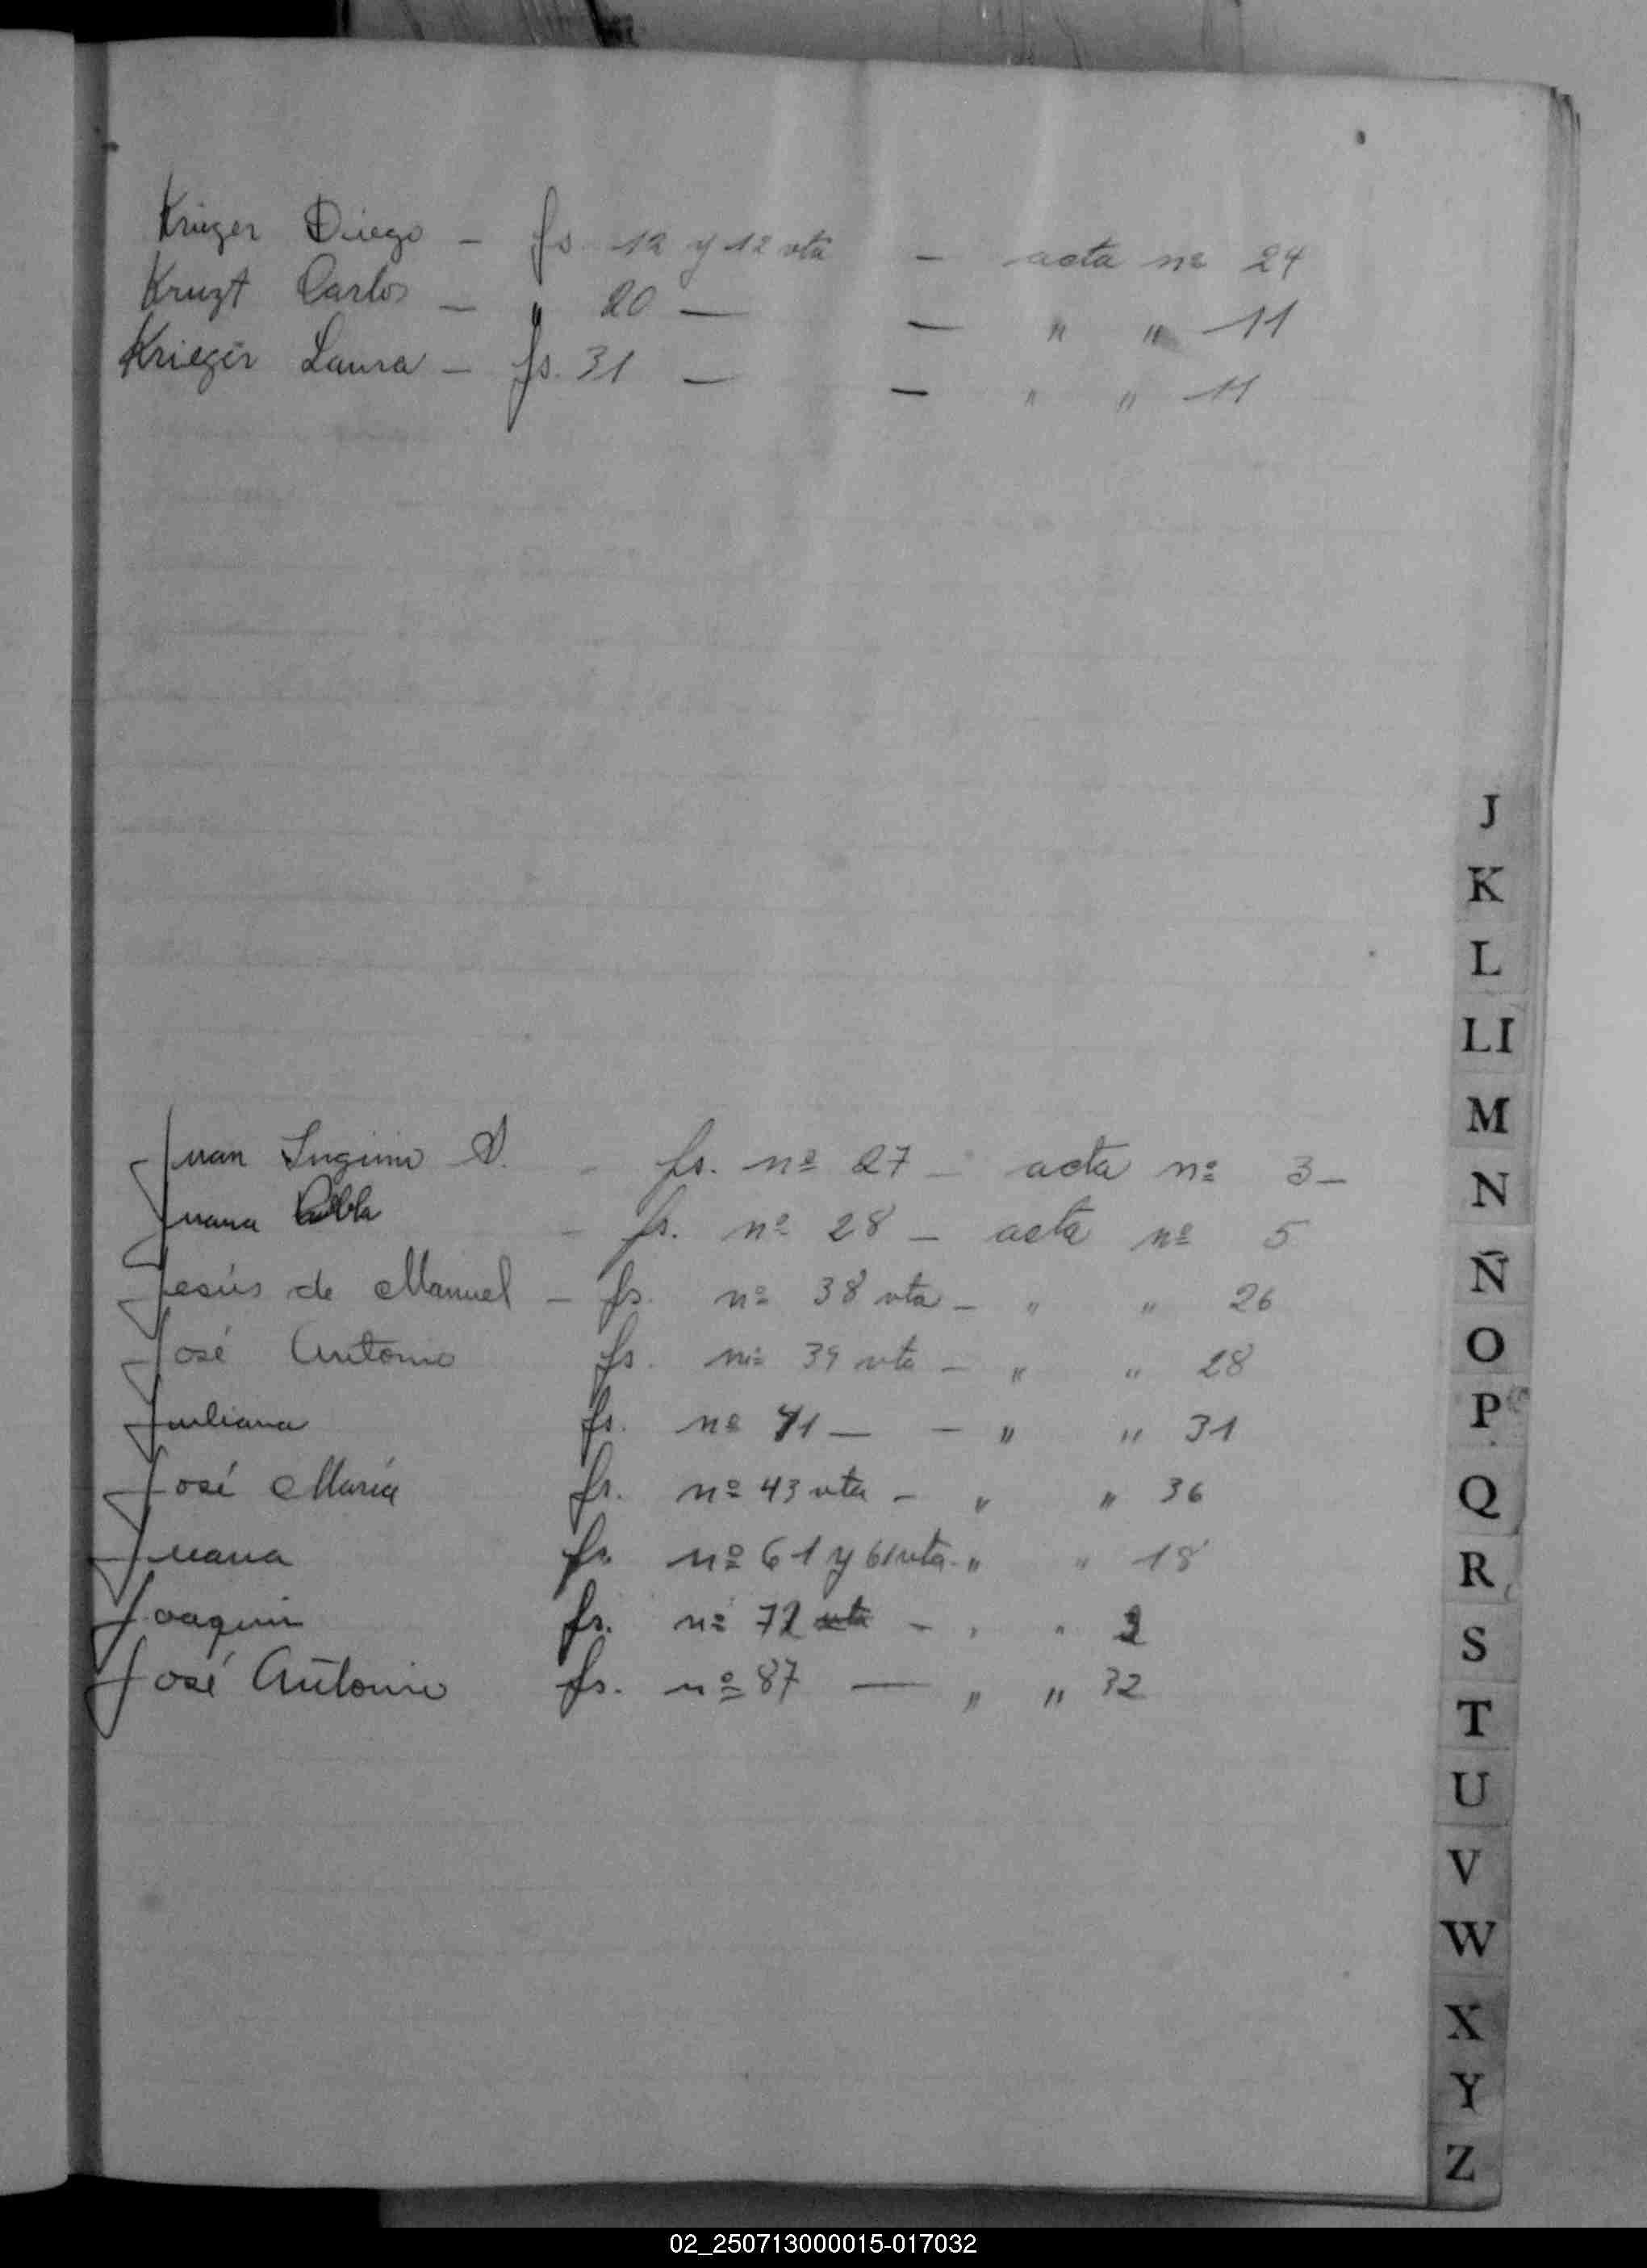 Krieger Diego - fs. 12 y 12 vta - acta nº 24
Kruzt Carlos - " 20 - - " " 11
Krieger Laura - fs. 31 - - " " 11
J
K
L
Ll
M
N
Ñ
O
P
Q
R
S
T
U
V
W
X
Y
Z
Juan Higinio S. - fs. nº 27 - acta nº 3 -
Juana - fs. nº 28 - acta nº 5
Jesús de Manuel - fs. nº 38 vta - " " 26
José Antonio fs. nº 39 vta - " " 28
Juliana fs. nº 41 - - " " 31
José María fs. nº 43 vta - " " 36
Juana fs. nº 61 y 61 vta - " " 18
Joaquin fs. nº 72 vta - " " 2
José Antonio fs. nº 87 - " " 32
02_250713000015-017032